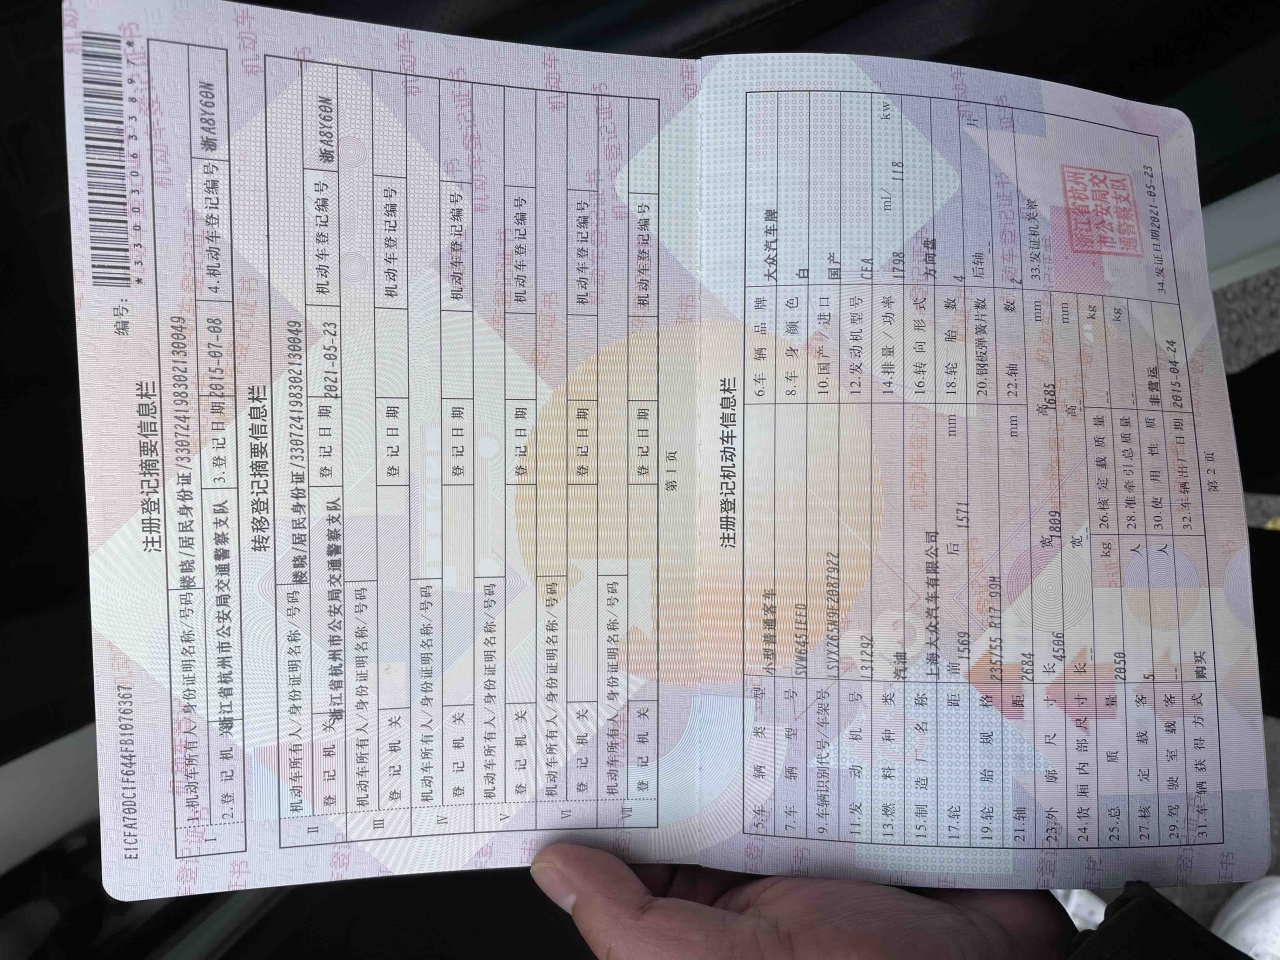 E1CFA70DC1F644FB1076367
编号:
*330030633897*
注册登记摘要信息栏
I 1.机动车所有人/身份证明名称/号码 楼晓/居民身份证/330724198302130049
2.登记机关 浙江省杭州市公安局交通警察支队 3.登记日期 2015-07-08 4.机动车登记编号 浙A8Y60N
转移登记摘要信息栏
II 机动车所有人/身份证明名称/号码 楼晓/居民身份证/330724198302130049
登记机关 浙江省杭州市公安局交通警察支队 登记日期 2021-05-23 机动车登记编号 浙A8Y60N
III 机动车所有人/身份证明名称/号码
登记机关 登记日期 机动车登记编号
IV 机动车所有人/身份证明名称/号码
登记机关 登记日期 机动车登记编号
V 机动车所有人/身份证明名称/号码
登记机关 登记日期 机动车登记编号
VI 机动车所有人/身份证明名称/号码
登记机关 登记日期 机动车登记编号
VII 机动车所有人/身份证明名称/号码
登记机关 登记日期 机动车登记编号
第 1 页
注册登记机动车信息栏
5.车辆类型 小型普通客车 6.车辆品牌 大众汽车牌
7.车辆型号 SVW6451FED 8.车身颜色 白
9.车辆识别代号/车架号 LSVXZ65N9F2087922 10.国产/进口 国产
11.发动机号 J31292 12.发动机型号 CEA
13.燃料种类 汽油 14.排量/功率 1798 ml/ 118 kw
15.制造厂名称 上海大众汽车有限公司 16.转向形式 方向盘
17.轮距 前 1569 后 1571 mm 18.轮胎数 4
19.轮胎规格 235/55 R17 99H 20.钢板弹簧片数 后轴 -- 片
21.轴距 2684 mm 22.轴数 2
23.外廓尺寸 长 4506 宽 1809 高 1685 mm
24.货厢内部尺寸 长 -- 宽 -- 高 -- mm
25.总质量 2050 kg 26.核定载质量 -- kg
27.核定载客 5 人 28.准牵引总质量 -- kg
29.驾驶室载客 -- 人 30.使用性质 非营运
31.车辆获得方式 购买 32.车辆出厂日期 2015-04-24
33.发证机关章
浙江省杭州
市公安局交
通警察支队
34.发证日期 2021-05-23
第 2 页